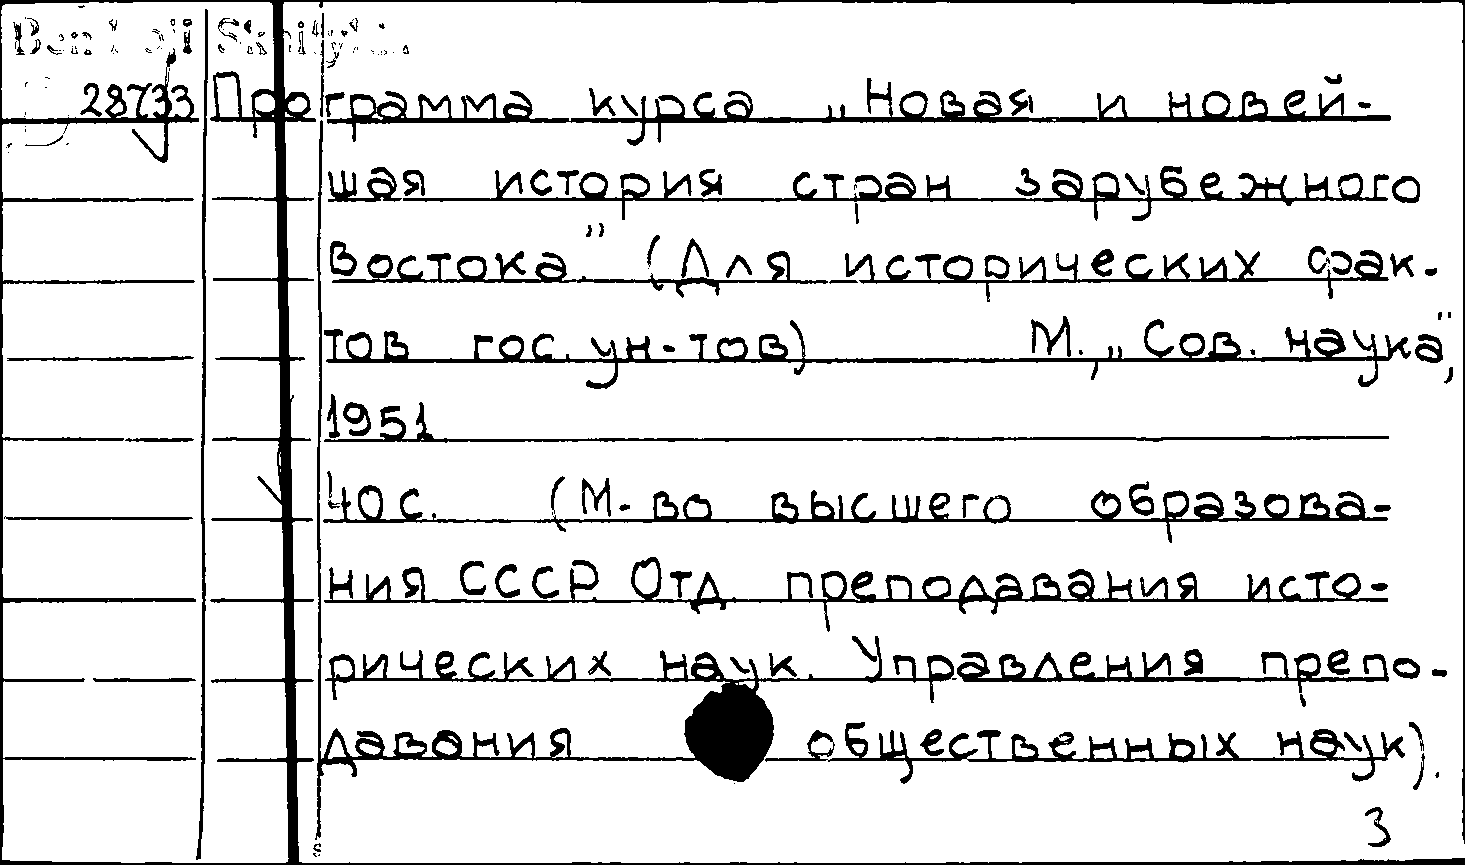 28733 Программа курса „Новая и новей-
шая история стран зарубежного
Востока." (Для исторических фак-
тов гос. ун-тов) М., „Сов. наука",
1951
40 с. (М-во высшего образова-
ния СССР. Отд. преподавания исто-
рических наук. Управления препо-
давания общественных наук).
3